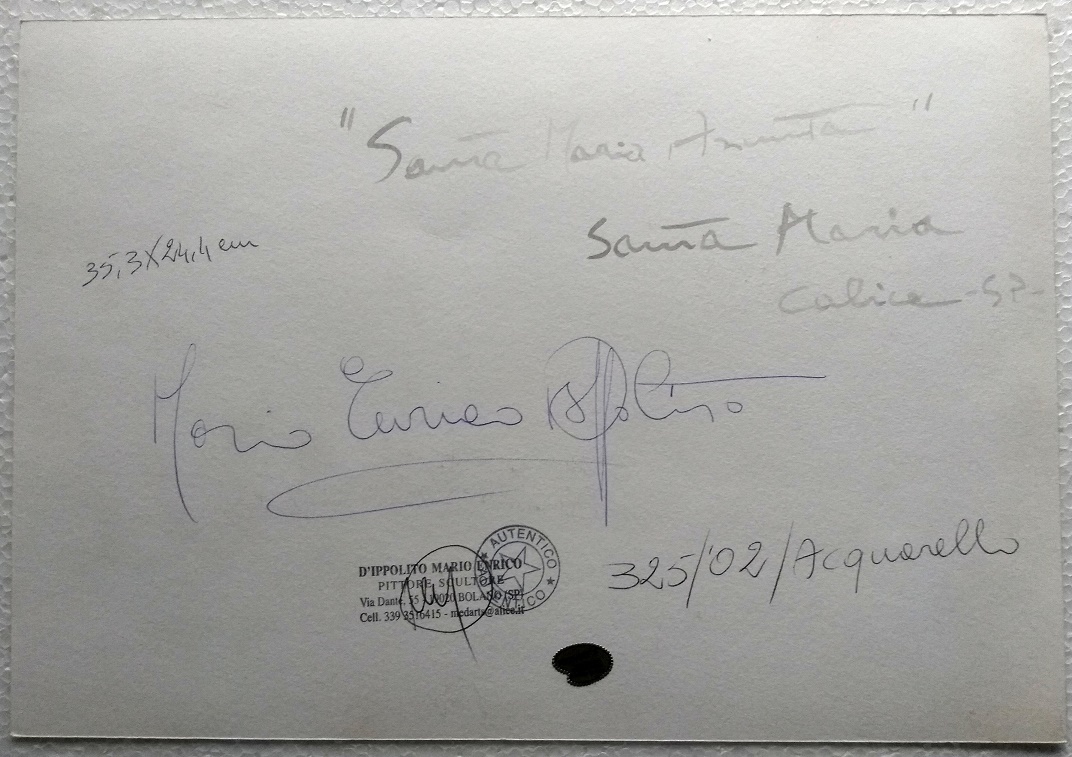 "Santa Maria Assunta"
Santa Maria
Calice -SP-
35,3X24,4 cm
Mario Enrico D'Ippolito
AUTENTICO
AUTENTICO
D'IPPOLITO MARIO ENRICO
PITTORE SCULTORE
Via Dante, 55 19020 BOLANO (SP)
Cell. 339 3516415 - medarts@alice.it
325/'02/Acquarello